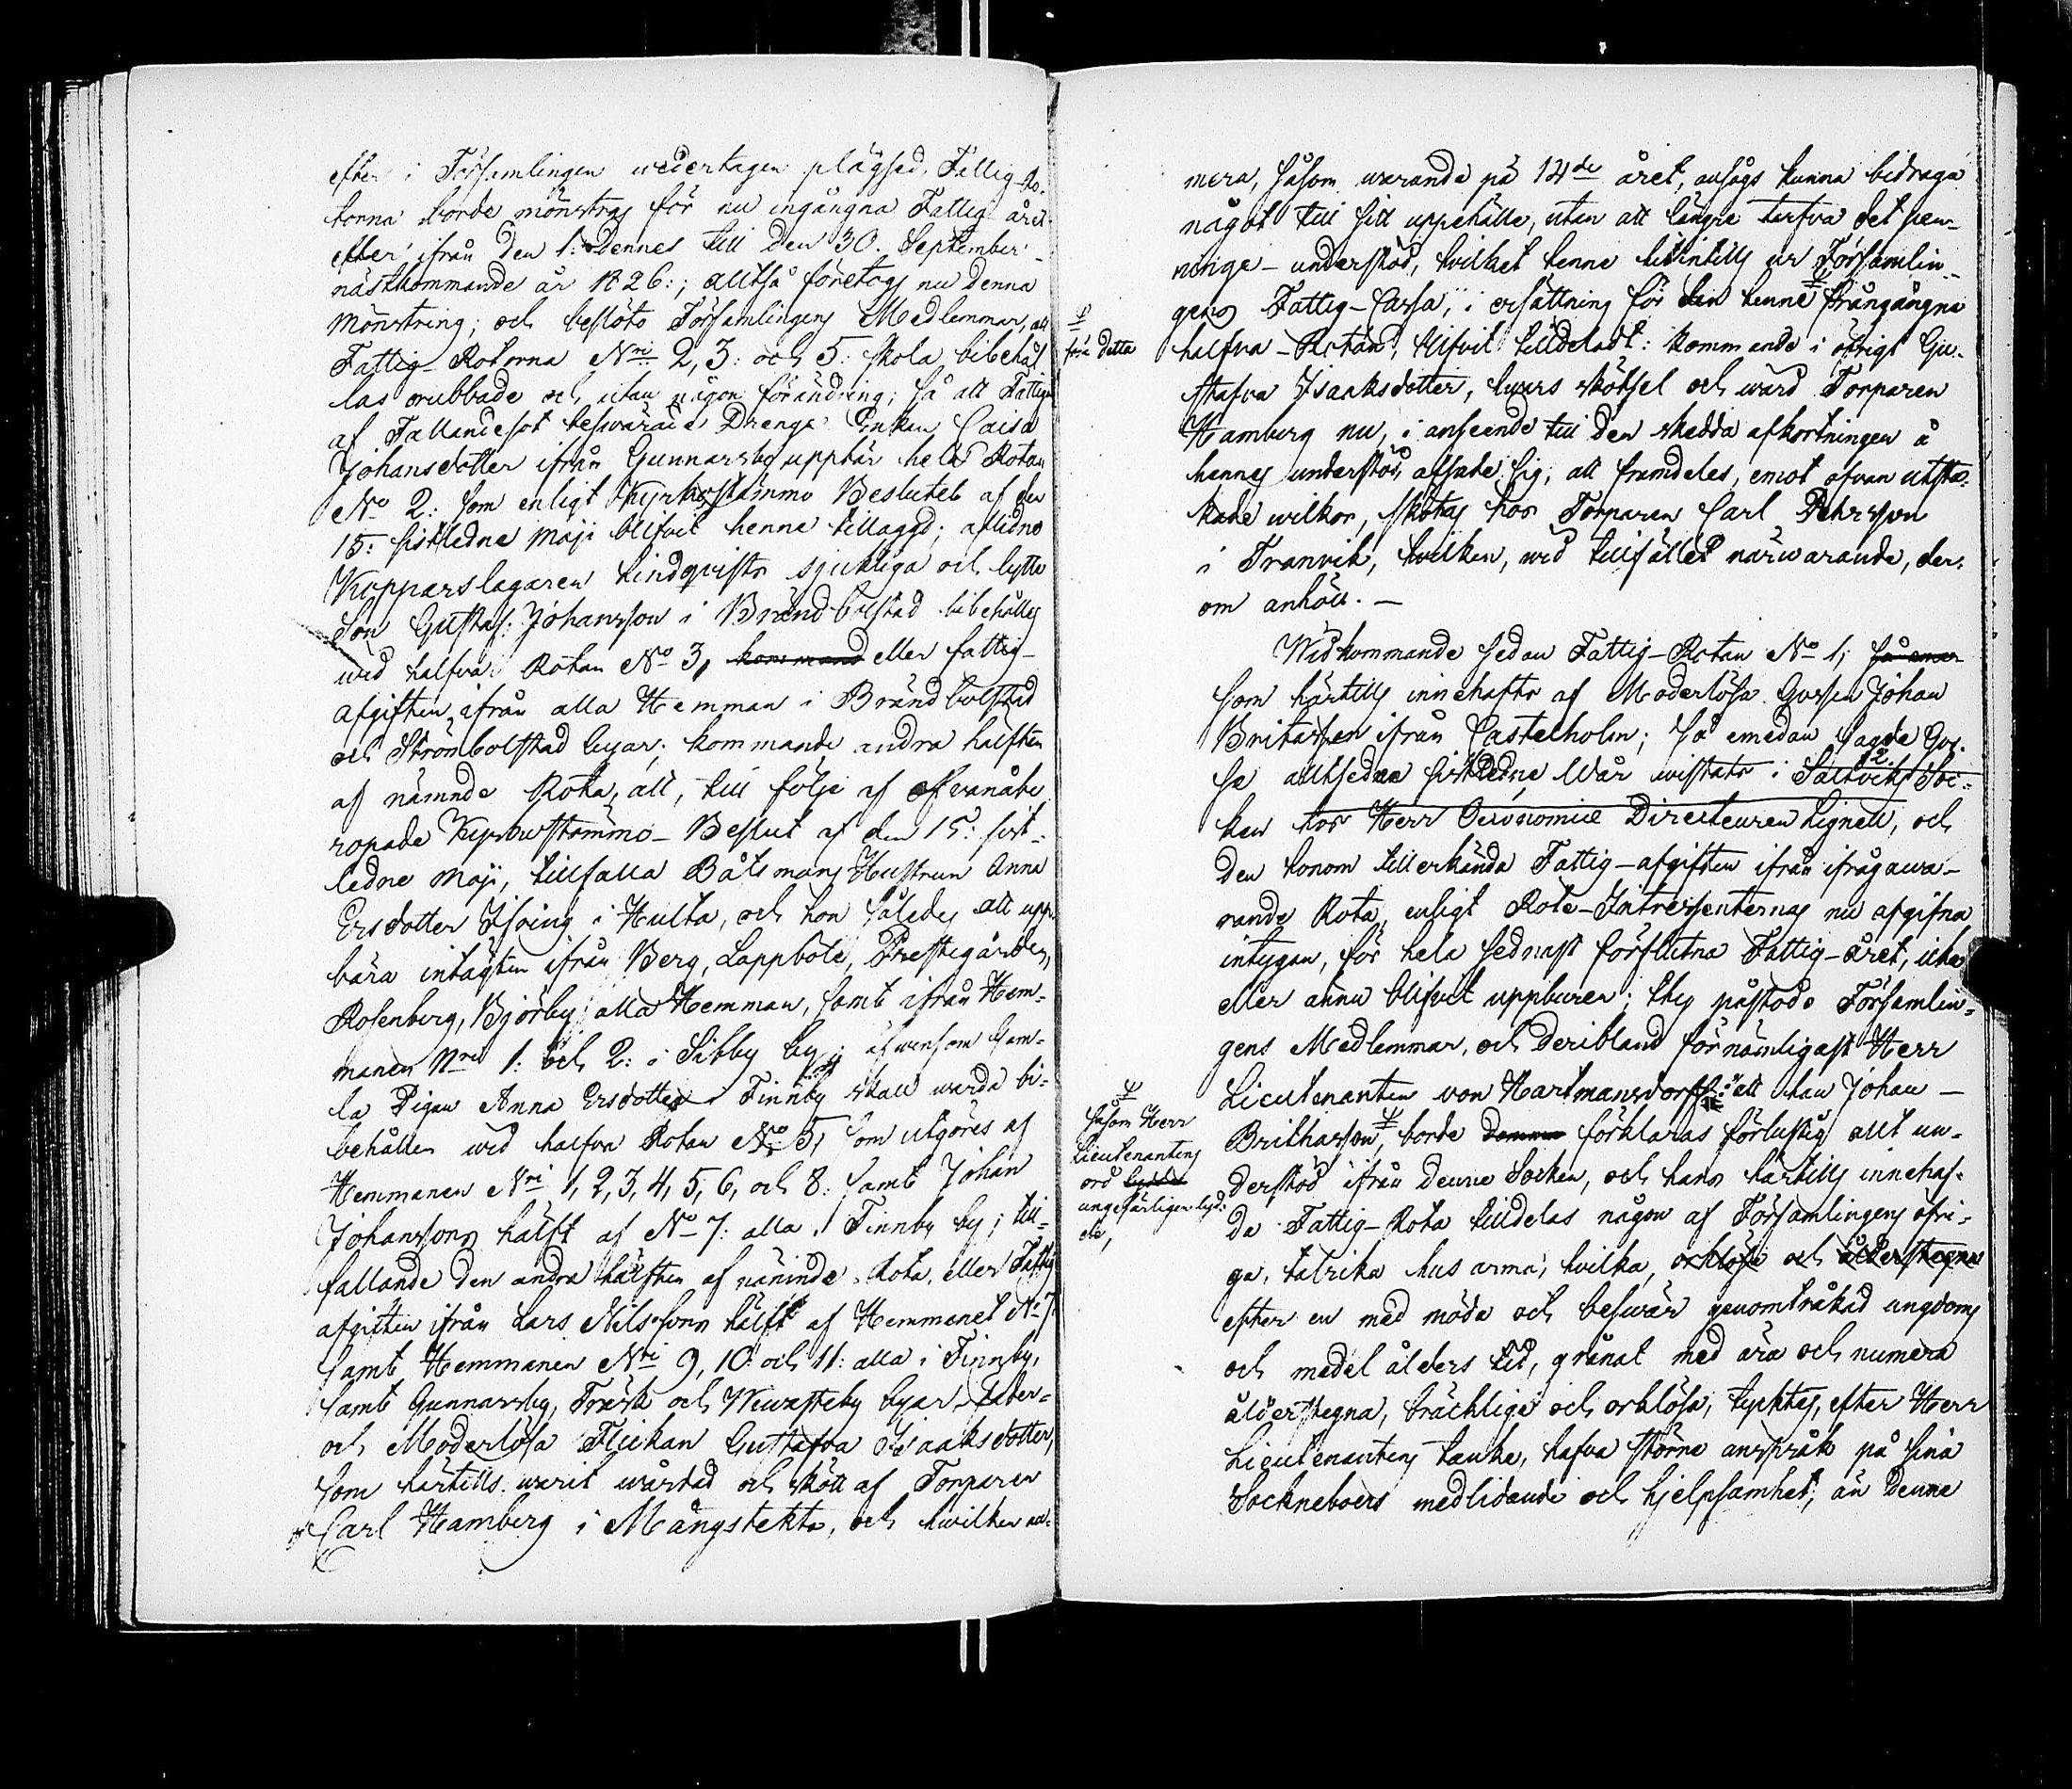 efter i Församlingen wedertagen plägsed, Fattig-Ro-
torna borde mönstras för nu ingångna Fattig året
efter ifrån den 1: dennes till den 30. September
nästkommande år 1826:; alltså företogs nu denna
Mönstring; och beslöto Församlingens Medlemmar, att
Fattig-Rotorna Nri 2, 3: och 5: skola bibehål-
las orubbade och utan någon förändring; så att Fattiga
af Fallandesot beswärade Drenge Enkan Caisa
Johansdotter ifrån Gunnarsby uppbär hela Rotan
No 2: som enligt Kyrkostämmo Beslutet af den
15: sistledne Maji blifvit henne tillaggd; aflidne
Kopparslagaren Lindqvists sjukliga och lytte
Son Gustaf Johansson i Brändbolstad bibehålles
wid halfva Rotan No 3, kommand eller fattig-
afgiften ifrån alla Hemman i Brändbolstad
och Strömbolstad byar; kommande andra hälften
af nämnde Rota, att, till följe af ofvanåbe-
ropade Kyrkostämmo-Beslut af den 15: sist-
ledne Maji, tillfalla Båtsmans Hustrun Anna
Ersdotter Ising i Hulta, och hon således att upp-
bära intägten ifrån Berg, Lappböle, Prestegården,
Rosenberg, Björby alla Hemman, samt ifrån Hem-
manen Nris 1: och 2: i Sibby by; äfwensom Gam-
la Pigan Anna Ersdotter i Finnby skall warda bi-
behållen wid halfva Rotan No 5, som utgöres af
Hemmanen Nri 1, 2, 3, 4, 5, 6, och 8: samt Johan
Johanssons hälft af No 7: alla i Finnby by; till-
fallande den andra hälften af nämnde Rota, eller Fattig
afgiften ifrån Lars Nilssons hälft af Hemmanet No 7
samt Hemmanen Nri 9, 10: och 11: alla i Finnby,
samt Gunnarsby, Träsk och Wiwasteby byar, Fader-
och Moderlösa Flickan Gustafva Isaaksdotter,
som härtills warit wårdad och skött af Torparen
Carl Hamberg i Mångstekta, och hwilken nu-
mera, såsom warande på 14de året, ansågs kunna bidraga
något till sitt uppehälle, utan att längre tarfva det pen-
ninge-understöd, hvilket henne hitintills ur Församlin-
gens Fattig-Cassa, i ersättning för den henne frångångna
för detta
halfva-Rotan, blifvit tilldeladt: kommande i öfrigt Gu-
stafva Isaaksdotter, hwars skötsel och wård Torparen
Hamberg nu, i anseende till den skedda afkortningen å
hennes understöd, afsade sig, att framdeles, emot ofvan utsta-
kade wilkor, skötas hos Torparen Carl Pehrsson
i Tranvik, hwilken, wid tillfället närwarande, der-
om anhöll. —
Widkommande sedan Fattig-Rotan No 1; så emed
som härtills innehafts af Moderlösa Gossen Johan
Britasson ifrån Castelholm; Så emedan sagde Gos-
se alltsedan sistledne Wår wistats i Saltviks Soc-
ken hos Herr Oeconomiæ Directeuren Lignell, och
den honom tillerkända Fattig-afgiften ifrån ifrågawa-
rande Rota, enligt Rote-Intressenternas nu afgifna
intygan, för hela sednast förflutna Fattig-året, icke
eller ännu blifvit uppburen; thy påstodo Församlin-
gens Medlemmar, och deribland förnämligast Herr
Lieutenanten von Hartmansdorff: att han Johan —
såsom Herr
Lieutenantens
ord
ungefärligen lyd-
de,
Brithasson, borde förklaras förlustig allt un-
derstöd ifrån denne Socken, och hans härtills innehaf-
da Fattig-Rota tilldelas någon af Församlingens öfri-
ga, talrika hus arma, hvilka, orklösa och ålderstegna
efter en med möda och beswär genomtråkad ungdoms
och medel ålders tid, grånat med ära och numera
ålderstegna, bräckliga och orklösa, tycktes, efter Herr
Lieutenantens tanke, hafva större anspråk på sina
Sockneboers medlidande och hjelpsamhet, än denne